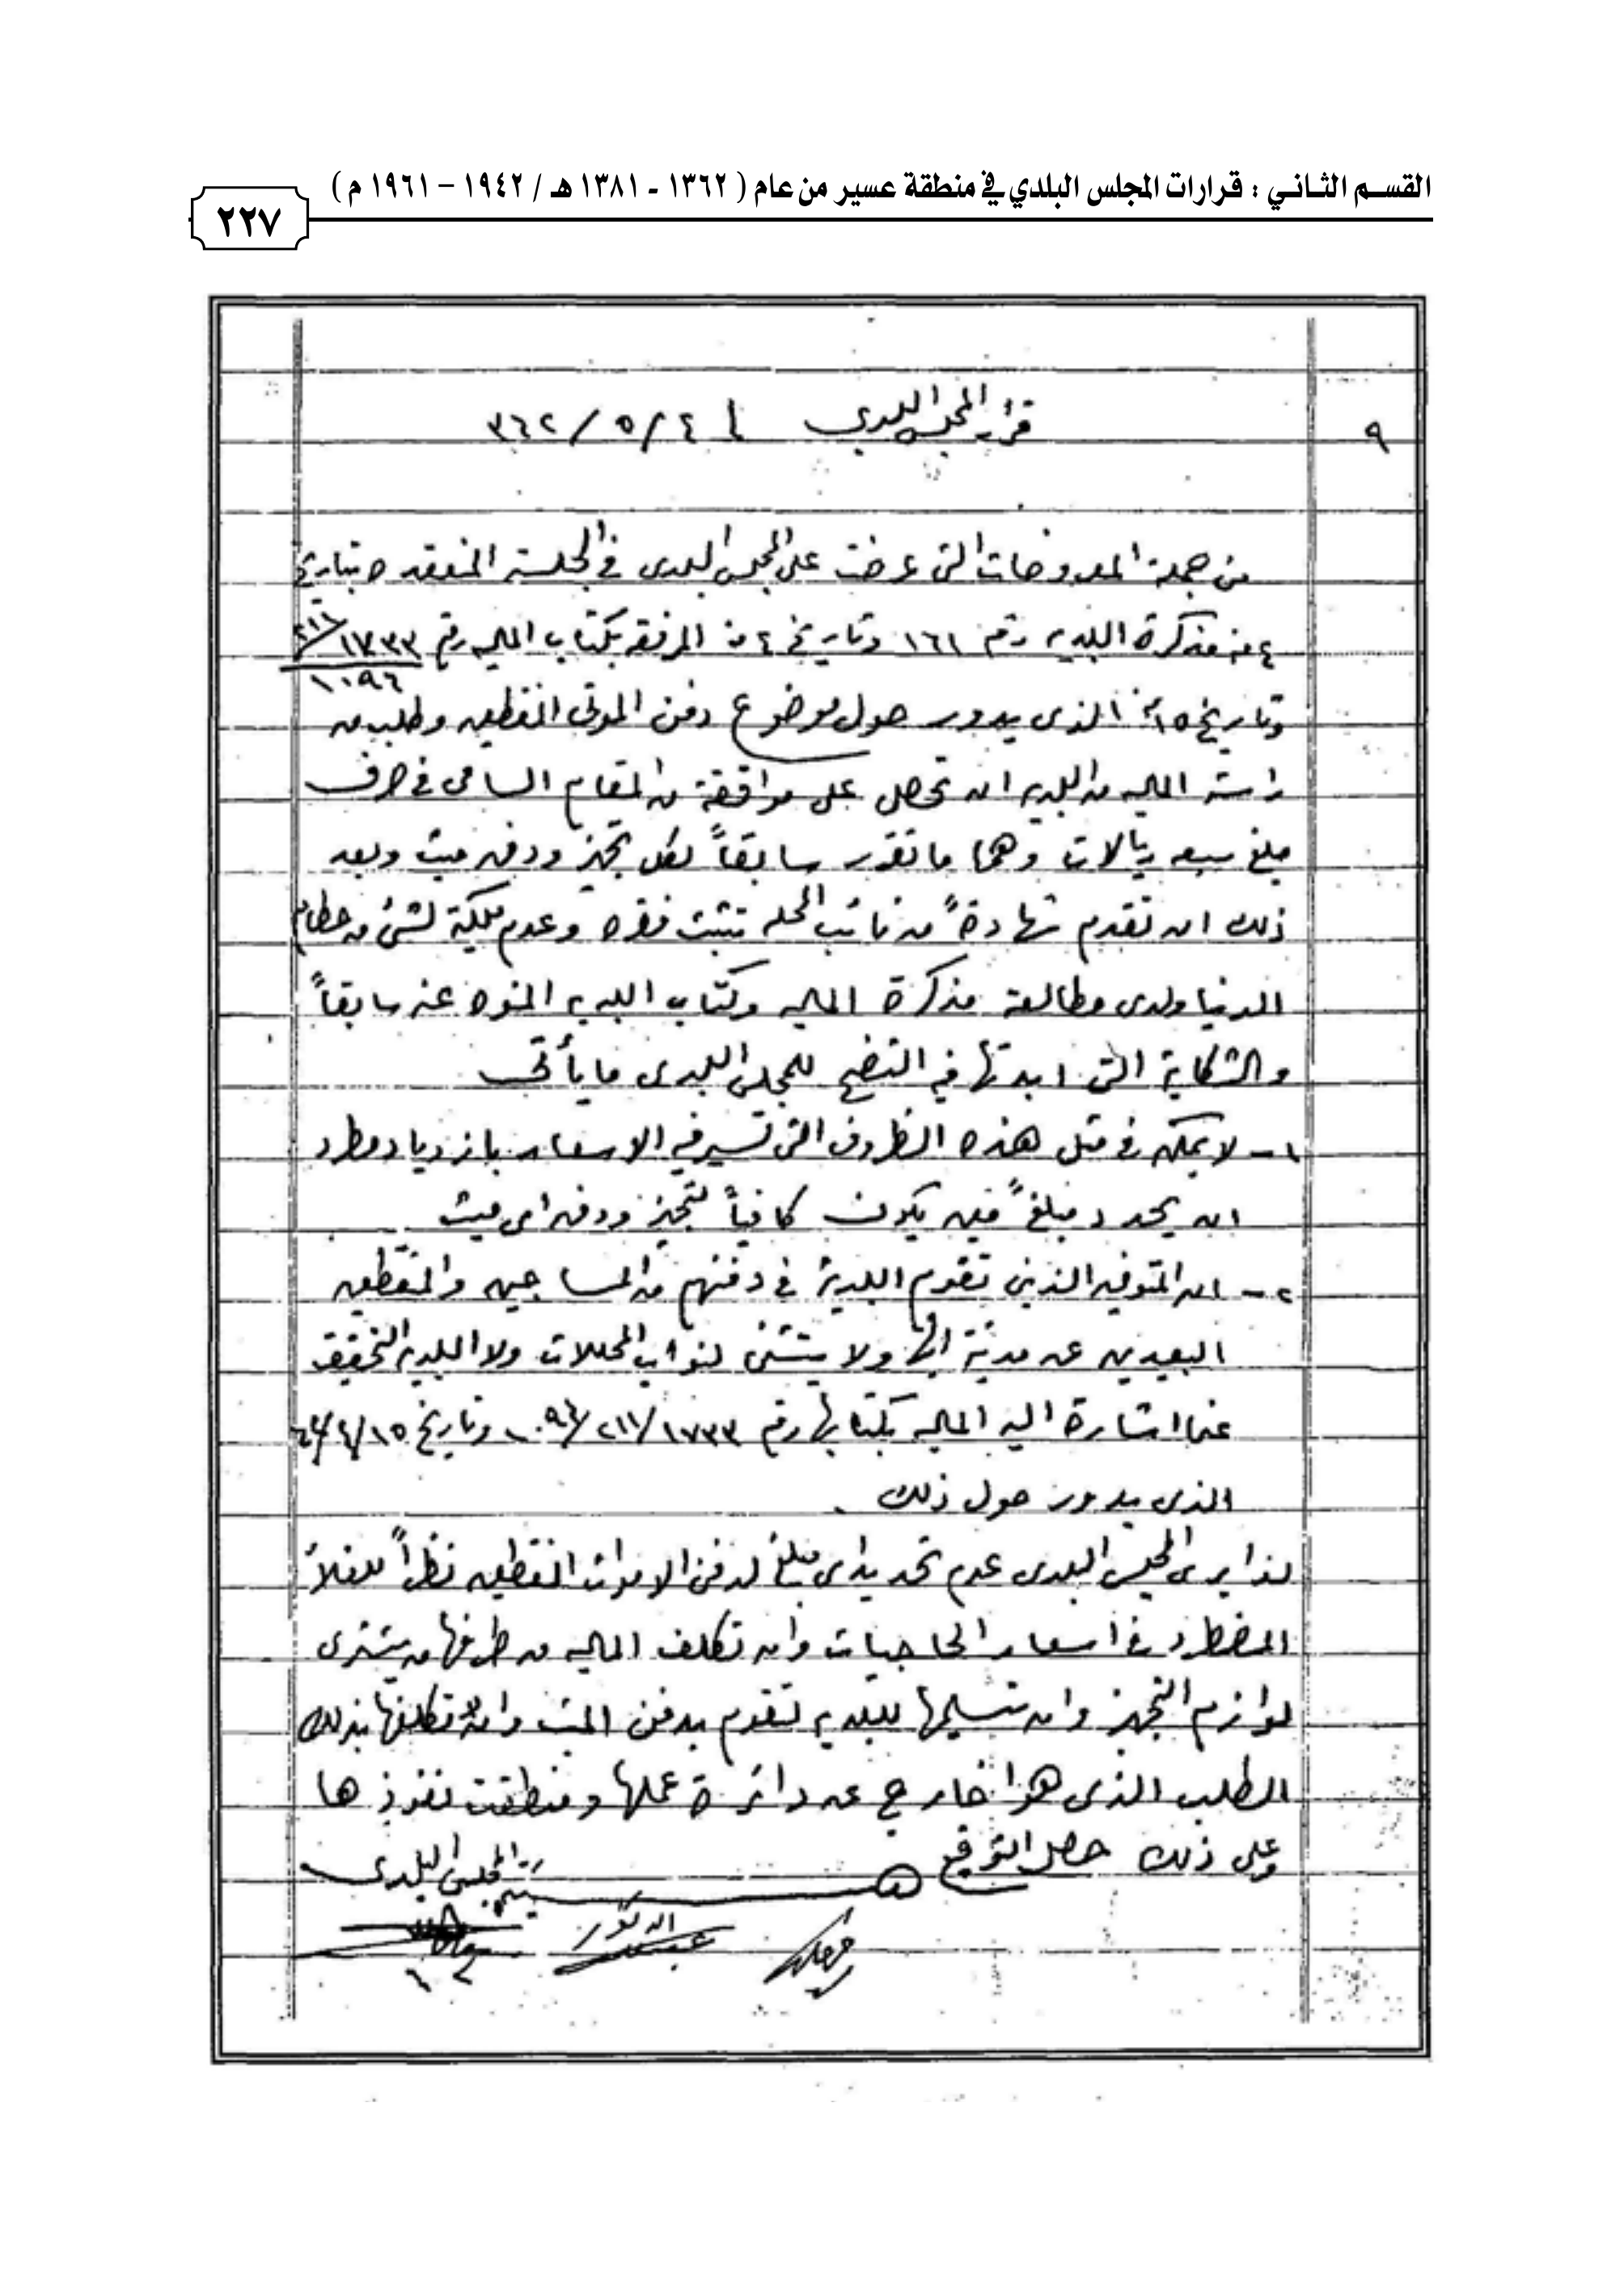 القسم الثاني : قرارات المجلس البلدي في منطقة عسير من عام ( ١٣٦٢ - ١٣٨١ هـ / ١٩٤٢ – ١٩٦١ م )
٢٢٧
٩
قرار المجلس البلدي ٤ / ٥ / ٣٦٢
من جملة المعروضات التى عرضت على المجلس البلدى في الجلسة المنعقده بتاريخ
٤ منه مذكرة البلديه رقم ١٦١ وتاريخ ٤ منه المرفقه بكتاب الماليه رقم ١٧٣٣/٢١١
١٠٩٦
وتاريخ ١٥ الذى يدور حول موضوع دفن الموتى المنقطعين وطلب من
المالية من البلديه ان تحصل على موافقة من المقام السامى في صرف
مبلغ سبعه ريالات وهما ما تقرر سابقاً لكل تجهيز ودفن ميت وبعد
ذلك ان تقدم شهادةً من نائب المحله تثبت فقره وعدم ملكية لشئ من حطام
الدنيا ولدى مطالعة مذكرة الماليه وكتاب البلديه المنوه عنه سابقاً
والشكاية التى ابدتها فيه اتضح للمجلس البلدى ما يأتى
١ - لا يمكن في مثل هذه الظروف التى تسير فيه الاسعار بازدياد مطرد
ان يحدد مبلغاً معين يكون كافياً لتجهيز ودفن اى ميت
٢ - ان المتوفين الذين تقوم البلدية في دفنهم من المساجين والمنقطعين
البعيدين عن مدينة ابها ولا يتثنى لنواب المحلات ولا البلديه التحقيق
عما اشارة اليه الماليه بكتابها رقم ١٧٣٣/٢١١/١٠٩٦ وتاريخ ١٥/٤/٦٢
الذى يدور حول ذلك .
لذا يرى المجلس البلدى عدم تحديد اى مبلغ لدفن الاموات المنقطعين نظراً للغلاء
المضطرد في اسعار الحاجيات وان تكلف الماليه من طرفها من يشترى
لوازم التجهيز وان تسليمها للبلديه لتقوم بدفن الميت وان تكلفها بذلك
الطلب الذى هو خارج عن دائرة عملها ومنطقت نفوذها
وعلى ذلك حصل التوقيع
المجلس البلدى
الدكتور